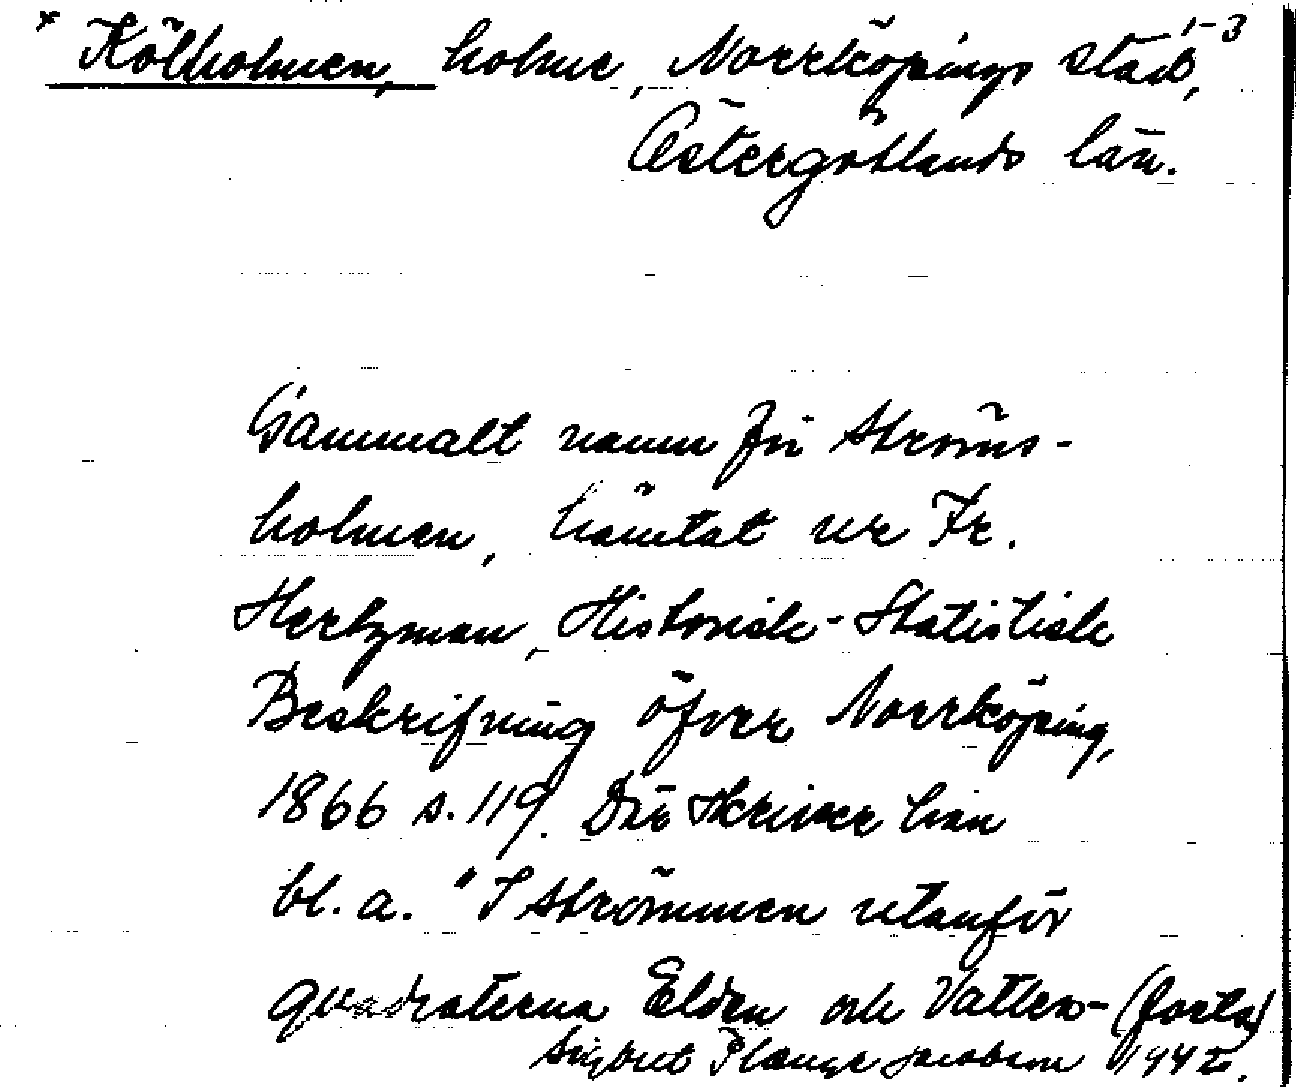 * Kölholmen, holme, Norrköpings stad, 1-3
Östergötlands län.
Gammalt namn för Ströms-
holmen, hämtat ur Fr.
Hertzman, Historisk-Statistisk
Beskrifning öfver Norrköping,
1866 s. 119. Där skriver han
bl. a. "I strömmen utanför
quadraterna Elden och Vatten- (forts)
Sigbrit Plange Jacobson 1942.